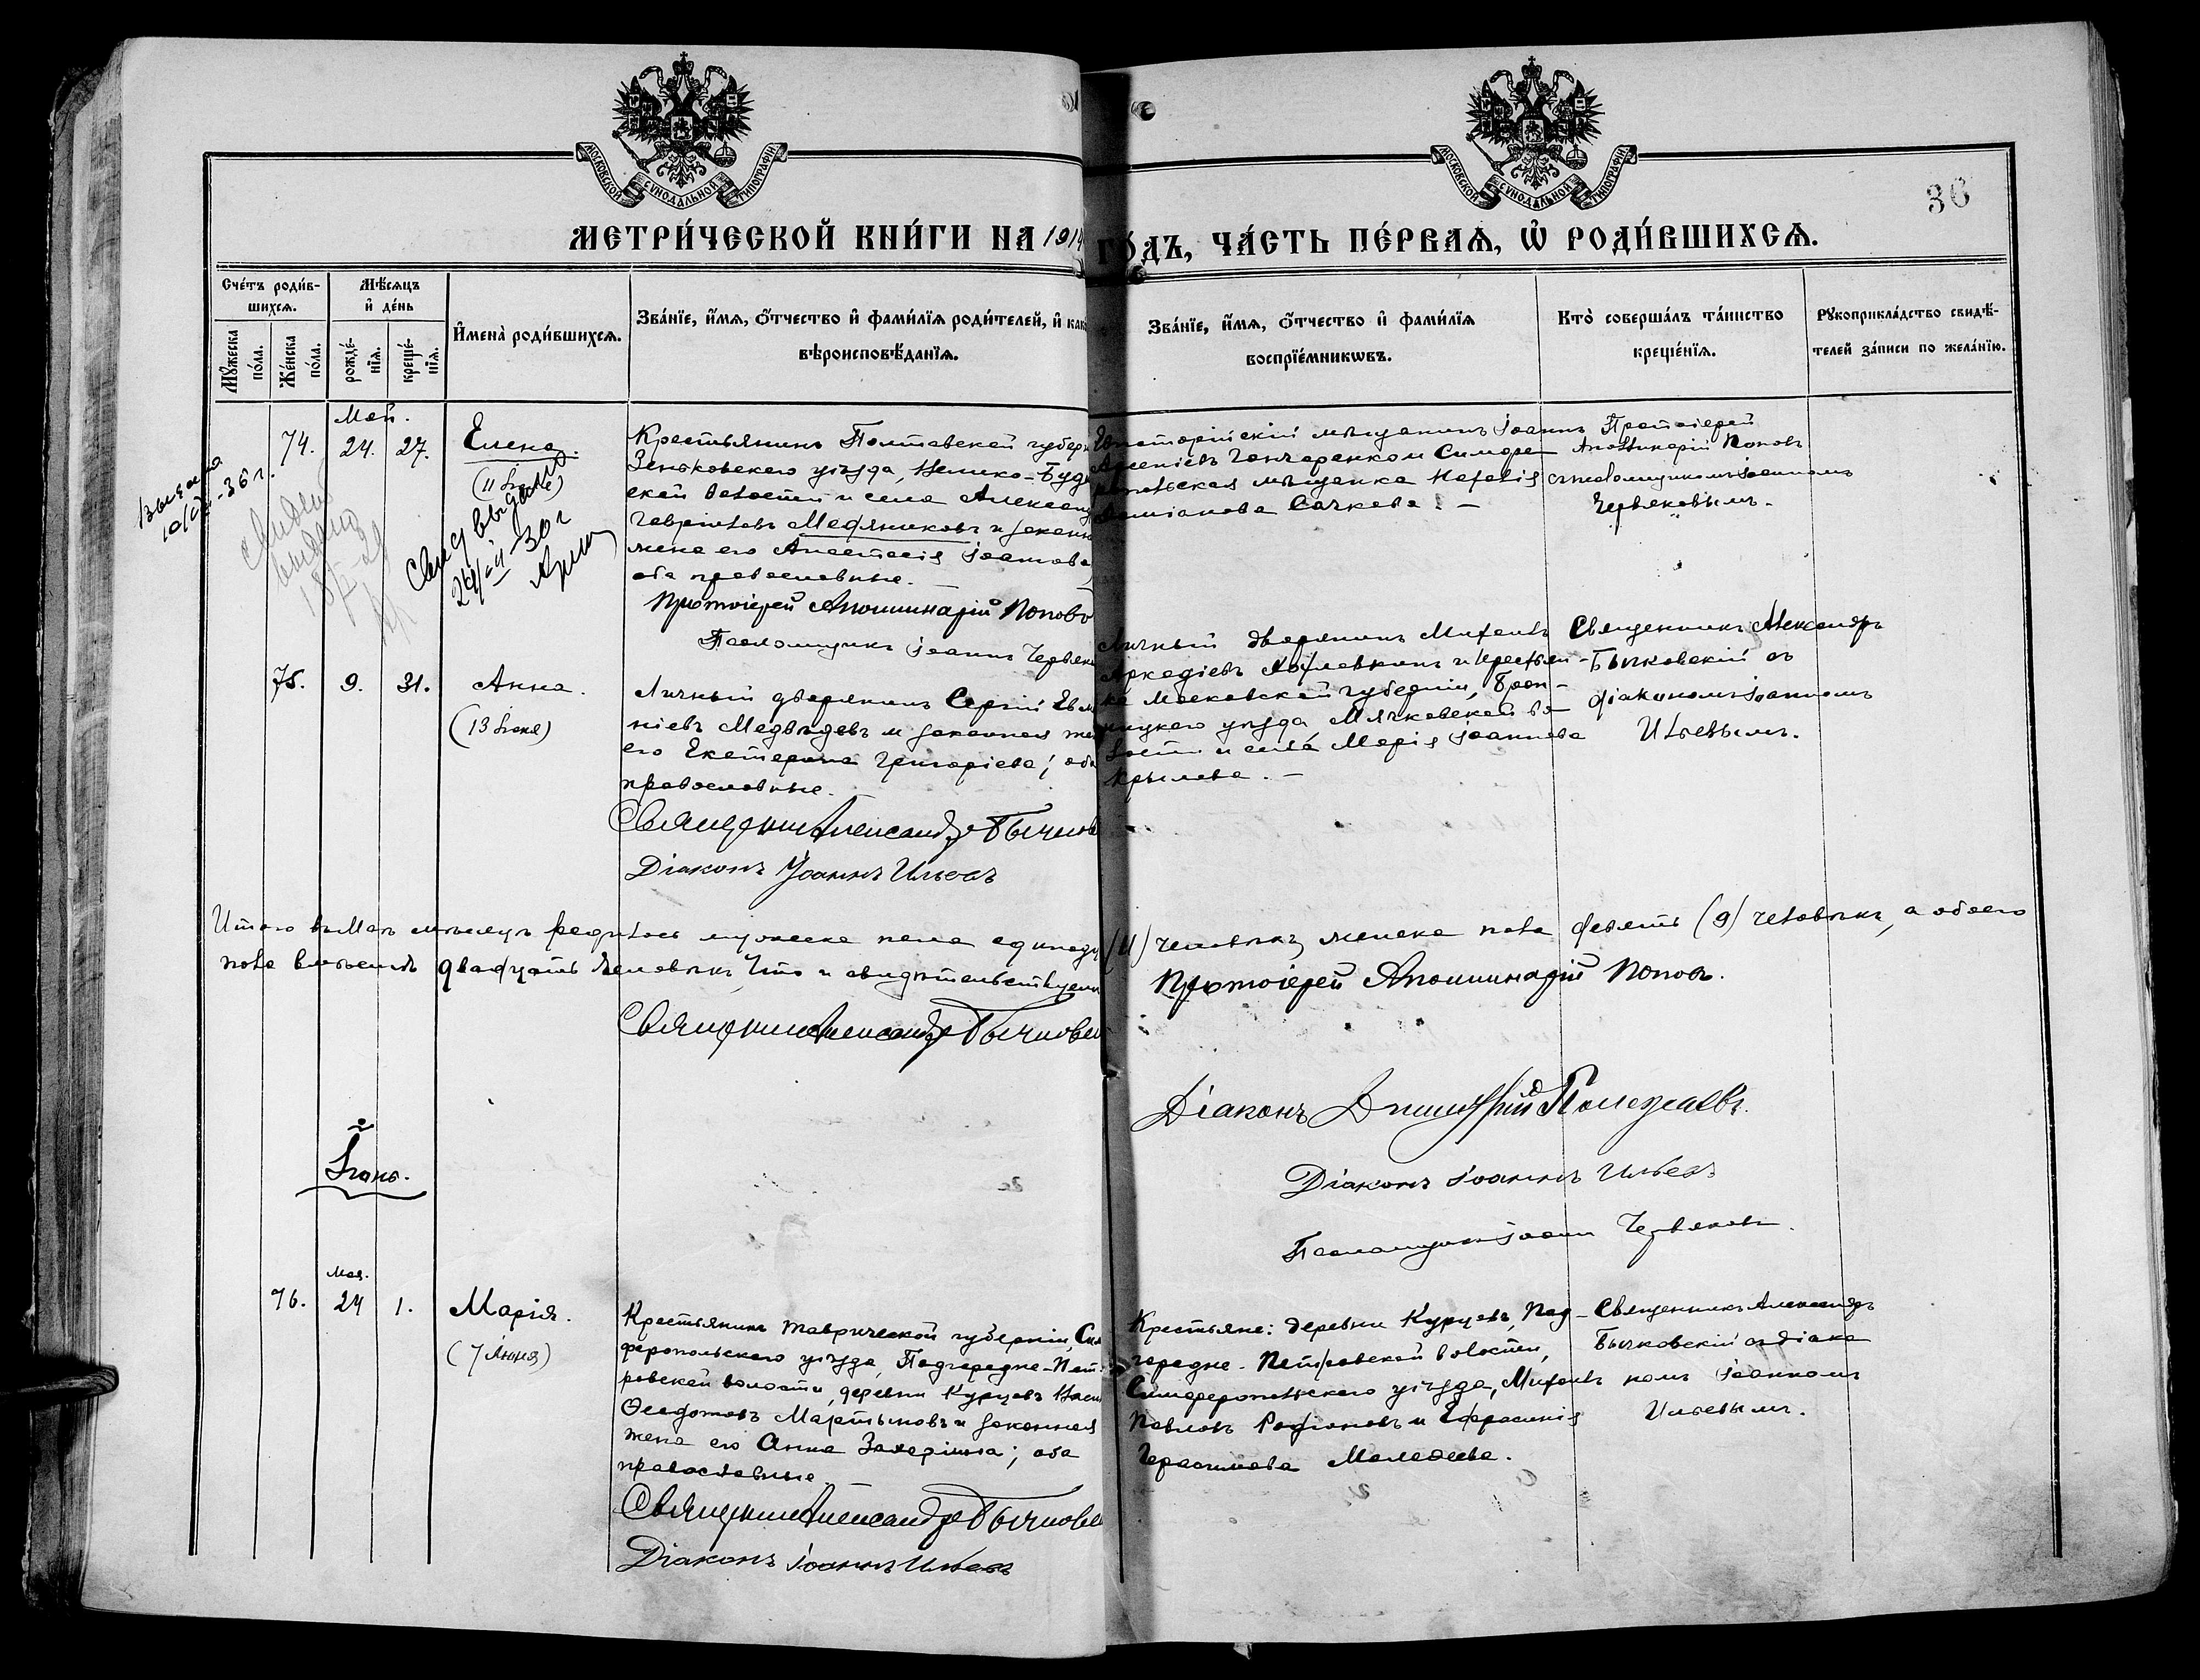 МОСКОВСКОЙ СѴНОДАЛЬНОЙ ТИПОГРАФІИ
МОСКОВСКОЙ СѴНОДАЛЬНОЙ ТИПОГРАФІИ
36
МЕТРИ́ЧЕСКОЙ КНИ́ГИ НА 1914
ГО́ДЪ, ЧА́СТЬ ПЕ́РВАѦ, Ѡ҆ РОДИ́ВШИХСѦ.
Сче́тъ роди́в-
шихсѧ.
Мѣ́сѧцъ
и҆ де́нь
Мꙋ́жеска
по́ла.
Же́нска
по́ла.
рожде́-
нїѧ.
креще́-
нїѧ.
И҆мена̀ роди́вшихсѧ.
Зва́нїе, и҆́мѧ, ѻ҆́тчество и҆ фами́лїѧ роди́телей, и҆ како
вѣроисповѣ́данїѧ.
Зва́нїе, и҆́мѧ, ѻ҆́тчество и҆ фами́лїѧ
воспрїе́мникѡвъ.
Кто̀ соверша́лъ та́инство
креще́нїѧ.
Рꙋкоприкла́дство свидѣ́-
телей за́писи по жела́нїю.
Май.
74.
24.
27.
Елена.
Свид выдано
24/-II-30г
Крестьянинъ Полтавской губерн
Зеньковскаго уѣзда, Велико-Буди
ской волости и села Александ
Гавріиловъ Медяниковъ и законн
жена его Анастасія Іоаннова
оба православные.
Протоіерей Аполлинарій Поповъ
Псаломщикъ Іоаннъ Червяк
Евпаторійскій мѣщанинъ Іоаннъ
Арсеніевъ Гончаренко и Симфе
ропольская мѣщанка Наталія
Даміанова Сачкова. –
Протоіерей
Аполлинарій Поповъ
съ псаломщикомъ Іоанномъ
Червяковымъ.
75.
9.
31.
Анна.
Личный дворянинъ Сергій Евг
ніевъ Медвѣдевъ и законная же
его Екатерина Григоріева; оба
православные.
Священникъ Александръ Бычков
Діаконъ Іоаннъ Ильевъ
Личный дворянинъ Михаилъ
Аркадіевъ и крестьян-
ка Московской губерніи, Брон-
ницкаго уѣзда, Мячковской во-
лости и села Марія Іоаннова
Крылова. –
Священникъ Александръ
Бычковскій съ
діакономъ Іоанномъ
Ильевымъ.
Итого въ Маѣ мѣсяцѣ родилось мужеска пола одиннадц
(11) человѣкъ, женска пола девять (9) человѣкъ, а обоего
пола вмѣстѣ двадцать человѣкъ, что и свидѣтельствуемъ
Протоіерей Аполлинарій Поповъ.
Священникъ Александръ Бычковск
Діаконъ Димитрій Полежаевъ.
Діаконъ Іоаннъ Ильевъ
Псаломщикъ Іоаннъ Червяковъ.
Іюнь.
Мая.
76.
24
1.
Марія.
Крестьянинъ Таврической губерніи, Сим
феропольскаго уѣзда, Подгородне-Пет
ровской волости, деревни Курцовъ Васи
Ѳеодотовъ Мартыновъ и законная
жена его Анна Захаріина; оба
православные.
Священникъ Александръ Бычковск
Діаконъ Іоаннъ Ильевъ
Крестьяне: деревни Курцовъ, Под-
городне-Петровской волости,
Симферопольскаго уѣзда, Михаилъ
Павловъ Родіоновъ и Евфросинія
Герасимова Молодцева.
Священникъ Александръ
Бычковскій съ діако
номъ Іоанномъ
Ильевымъ.